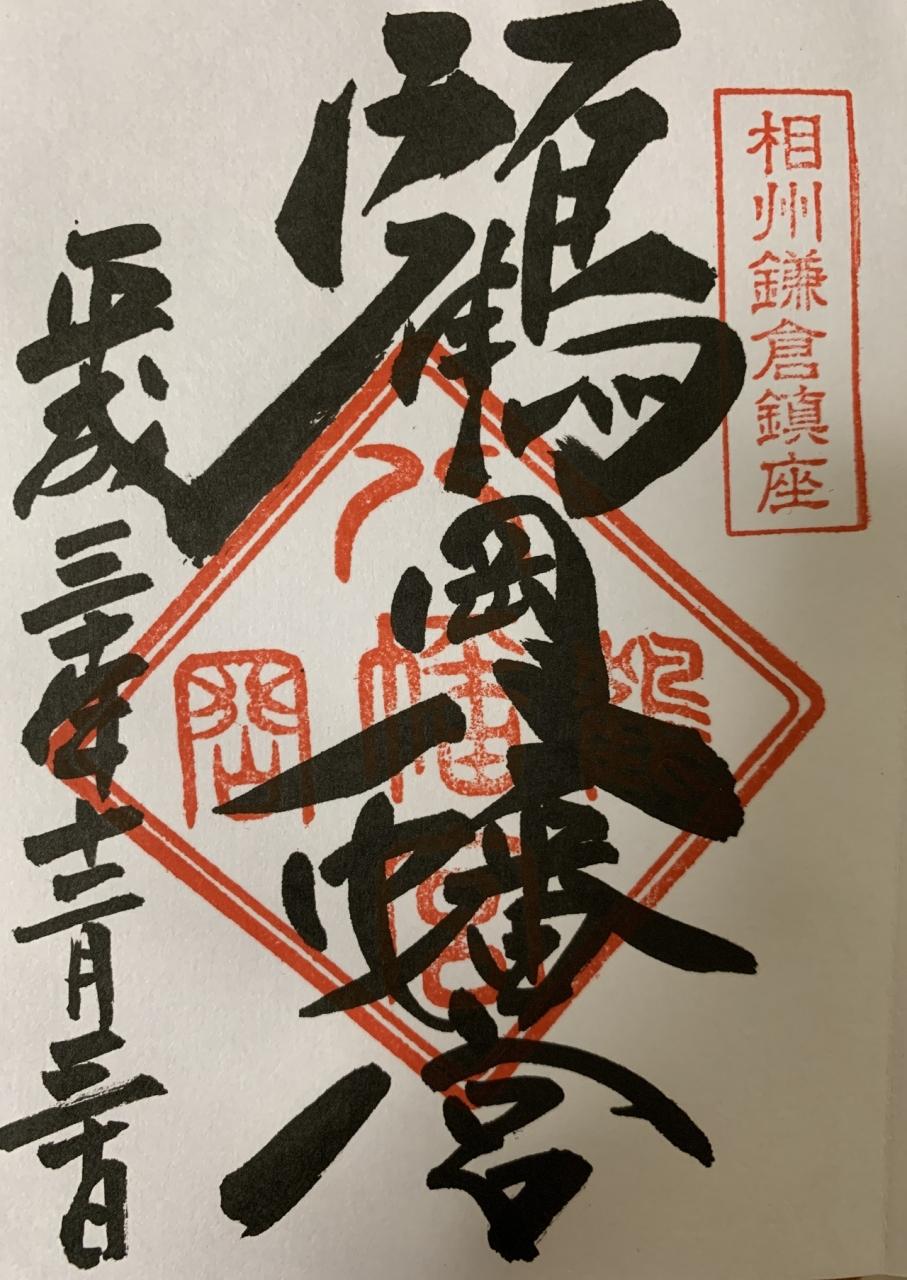 相州鎌倉鎮座
鶴岡八幡宮
鶴岡八幡宮
平成三十年十二月三十日